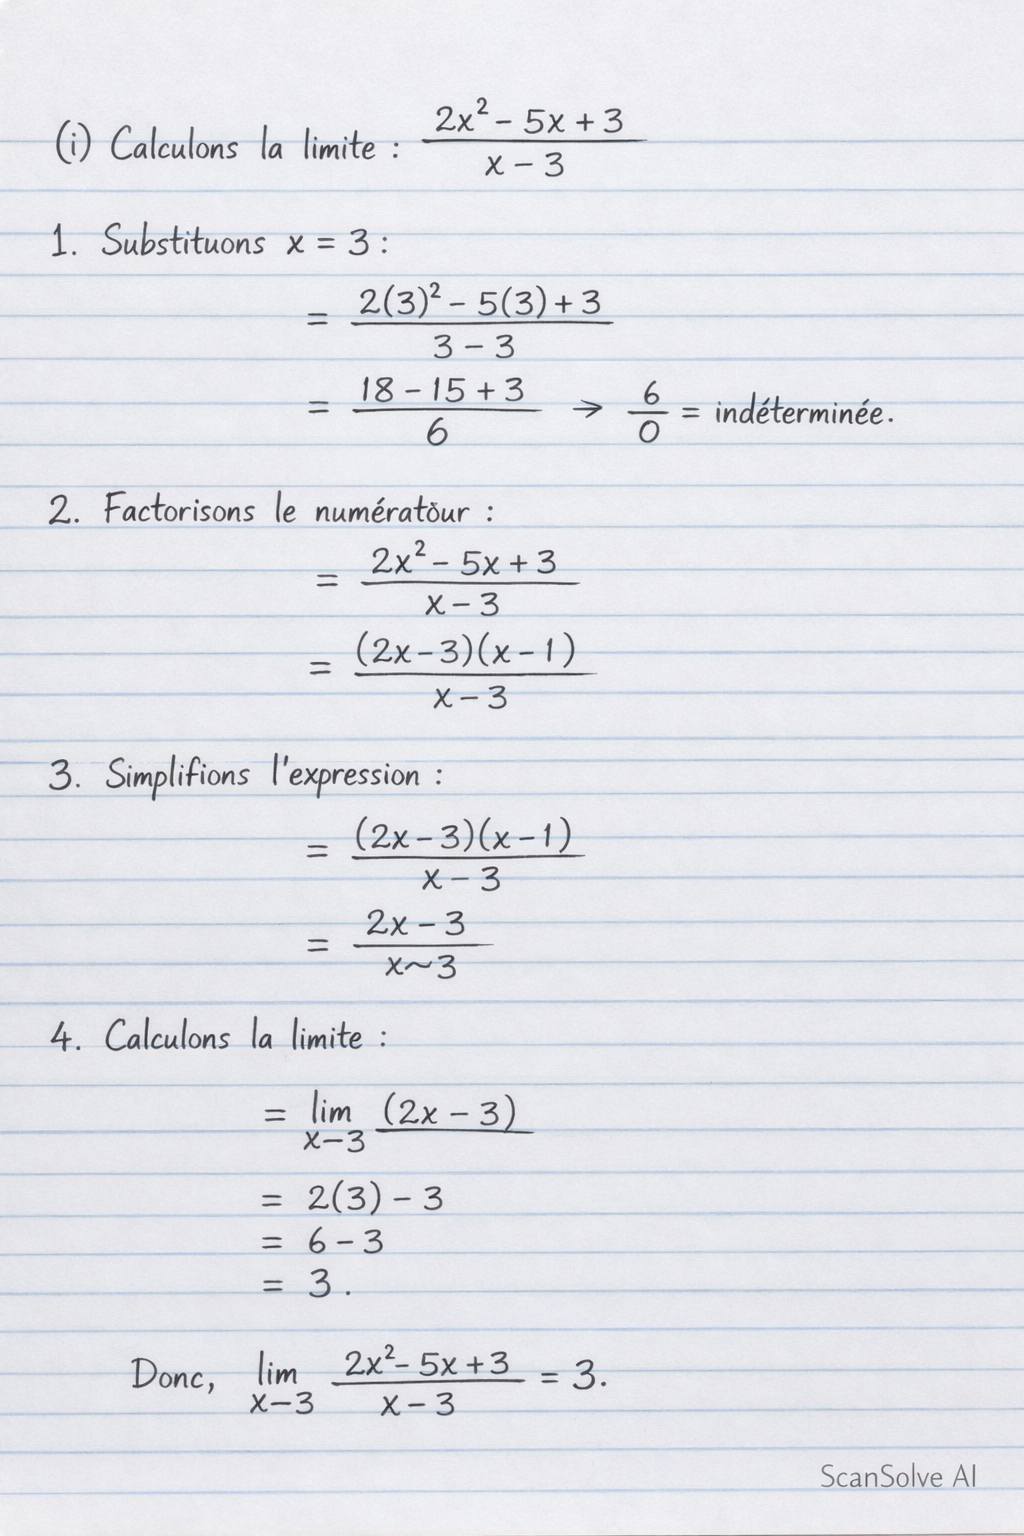 (i) Calculons la limite : (2x² - 5x + 3)/(x - 3)
1. Substituons x = 3 :
= (2(3)² - 5(3) + 3)/(3 - 3)
= (18 - 15 + 3)/6 → 6/0 = indéterminée.
2. Factorisons le numératöur :
= (2x² - 5x + 3)/(x - 3)
= ((2x - 3)(x - 1))/(x - 3)
3. Simplifions l'expression :
= ((2x - 3)(x - 1))/(x - 3)
= (2x - 3)/(x ~ 3)
4. Calculons la limite :
= lim x-3 (2x - 3)
= 2(3) - 3
= 6 - 3
= 3.
Donc, lim x-3 (2x² - 5x + 3)/(x - 3) = 3.
ScanSolve AI